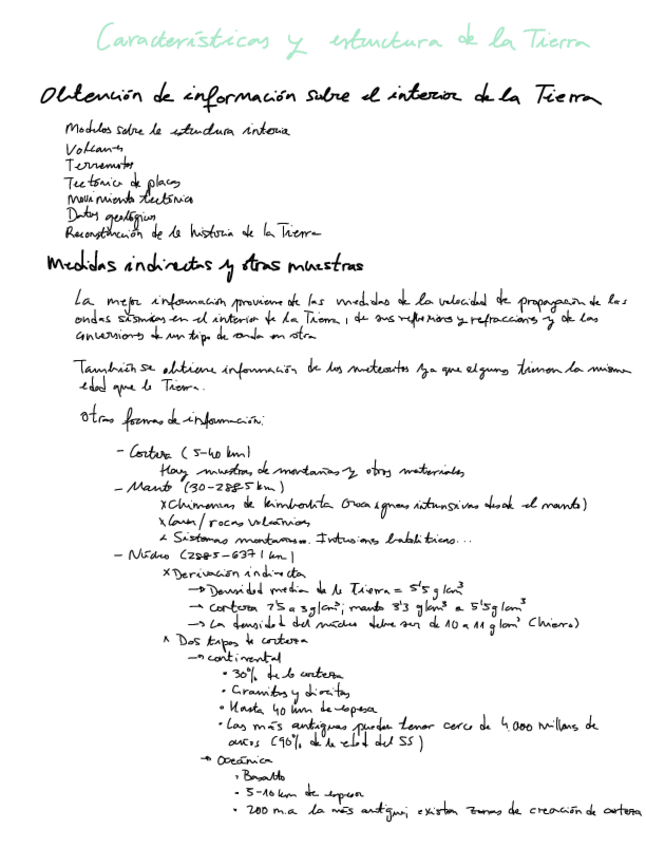 Características y estructura de la Tierra
Obtención de información sobre el interior de la Tierra
Modelos sobre la estructura interna
Volcanes
Terremotos
Tectónica de placas
Movimiento tectónico
Datos geológicos
Reconstrucción de la historia de la Tierra
Medidas indirectas y otras muestras
La mejor información proviene de las medidas de la velocidad de propagación de las
ondas sísmicas en el interior de la Tierra, de sus reflexiones y refracciones y de las
conversiones de un tipo de onda en otra
También se obtiene información de los meteoritos ya que algunos tienen la misma
edad que la Tierra.
Otras formas de información:
- Corteza (5-40 km)
Hay muestras de montañas y otros materiales
- Manto (30-2885 km)
x Chimeneas de kimberlita (roca ígneas intrusivas desde el manto)
x Lavas/rocas volcánicas
x Sistemas montañosos. Intrusiones batolíticas...
- Núcleo (2885-6371 km)
x Derivación indirecta
→ Densidad media de la Tierra = 5'5 g/cm³
→ corteza 2'5 a 3 g/cm³; manto 3'3 g/cm³ a 5'5 g/cm³
→ La densidad del núcleo debe ser de 10 a 11 g/cm³ (hierro)
x Dos tipos de corteza
→ continental
• 30% de la corteza
• Granitos y dioritas
• Hasta 40 km de espesor
• Las más antiguas pueden tener cerca de 4.000 millones de
años (90% de la edad del SS)
→ Oceánica
• Basalto
• 5-10 km de espesor
• 200 m.a la más antigua; existen zonas de creación de corteza